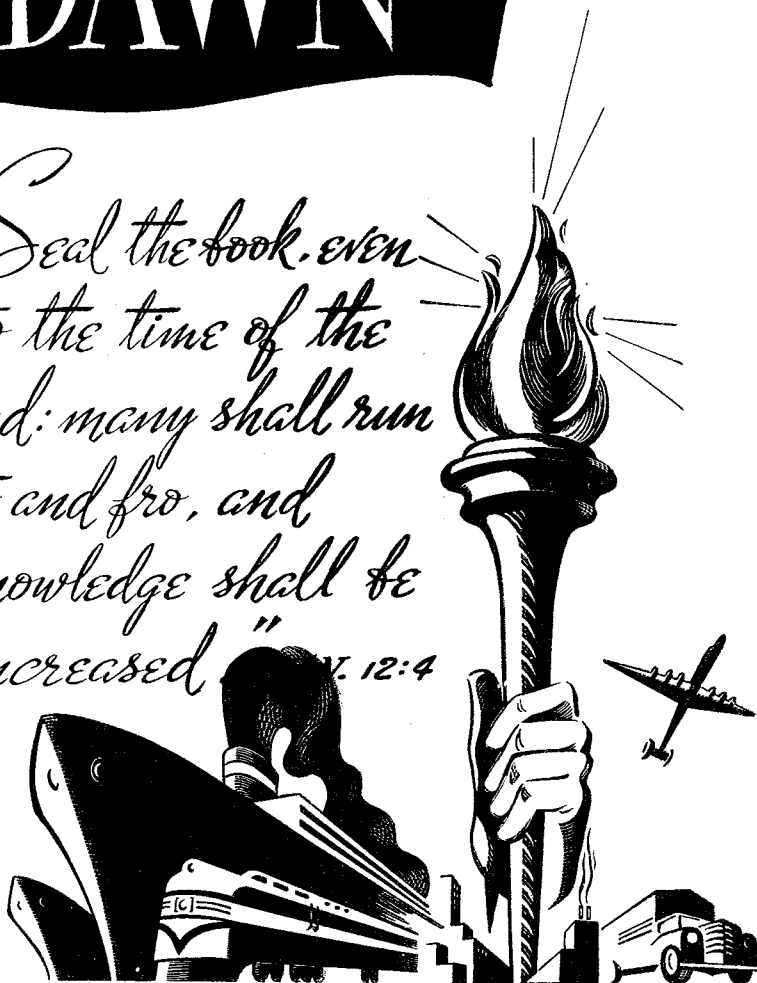 DAWN
Seal the book, even
the time of the
d: many shall run
and fro, and
nowledge shall be
ncreased."
12:4
[C]